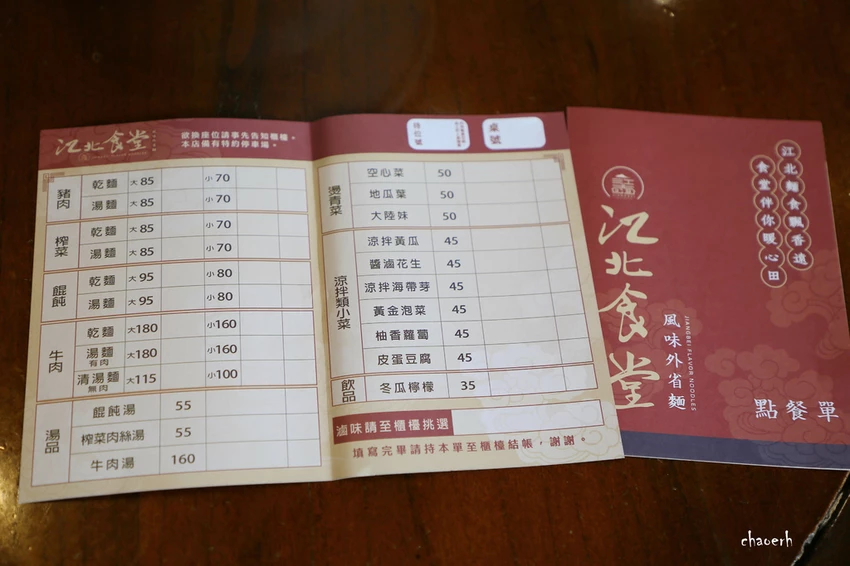 江北食堂
欲換座位請事先告知櫃檯。
本店備有特約停車場。
豬肉
乾麵 大85 小70
湯麵 大85 小70
榨菜
乾麵 大85 小70
湯麵 大85 小70
餛飩
乾麵 大95 小80
湯麵 大95 小80
牛肉
乾麵 大180 小160
湯麵 有肉 大180 小160
清湯麵 無肉 大115 小100
湯品
餛飩湯 55
榨菜肉絲湯 55
牛肉湯 160
桌號
燙青菜
空心菜 50
地瓜葉 50
大陸妹 50
涼拌類小菜
涼拌黃瓜 45
醬滷花生 45
涼拌海帶芽 45
黃金泡菜 45
柚香蘿蔔 45
皮蛋豆腐 45
飲品
冬瓜檸檬 35
滷味請至櫃檯挑選
填寫完畢請持本單至櫃檯結帳,謝謝。
江北麵食飄香遠
食堂伴你暖心田
江北食堂
JIANGBEI FLAVOR NOODLES
風味外省麵
點餐單
chaoerh